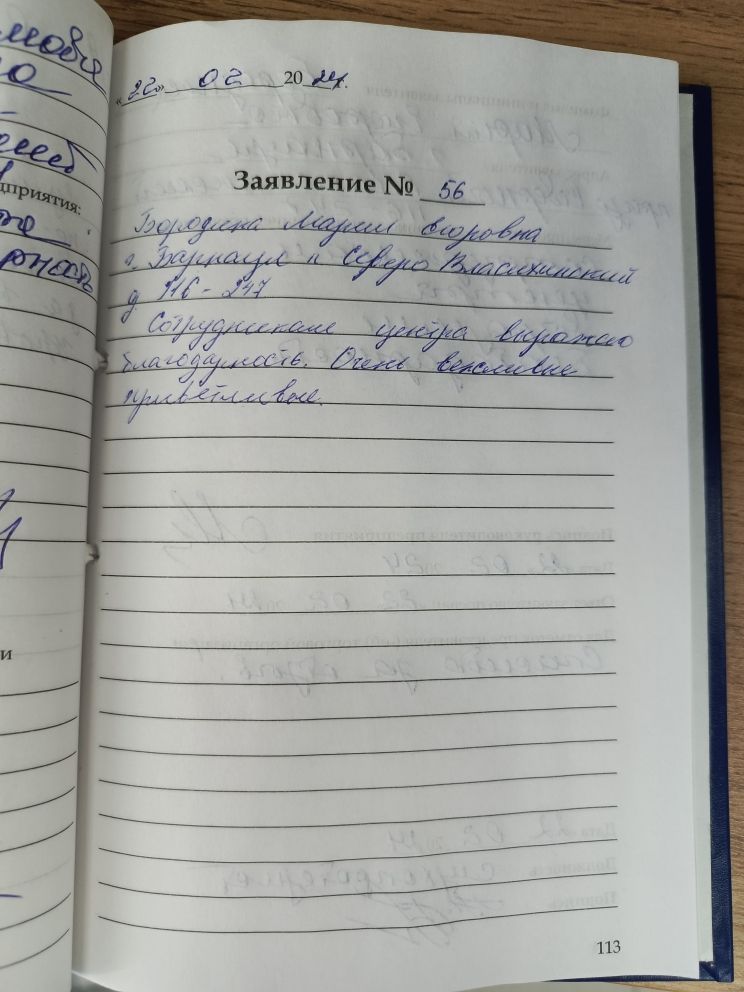 «22» 02 2024г.
Заявление № 56
Бородина Мария Егоровна
г. Барнаул п Северо Власихинский
д. 116 - 247
Сотрудникам центра выражаю
благодарность. Очень вежливые
приветливые.
дприятия:
и
113